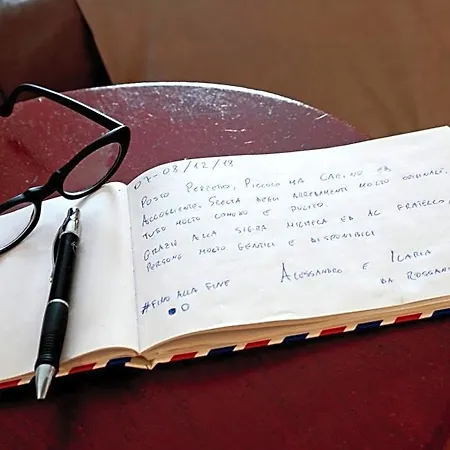 07-08/12/19
POSTO PERFETTO, PICCOLO MA CARINO ED
ACCOGLIENTE. SCELTA DEGLI ARREDAMENTI MOLTO ORIGINALE,
TUTTO MOLTO COMODO E PULITO.
GRAZIE ALLA SIG.RA MICHELA ED AL FRATELLO,
PERSONE MOLTO GENTILI E DISPONIBILI
ALESSANDRO E ILARIA
DA ROSSANO
#FINO ALLA FINE